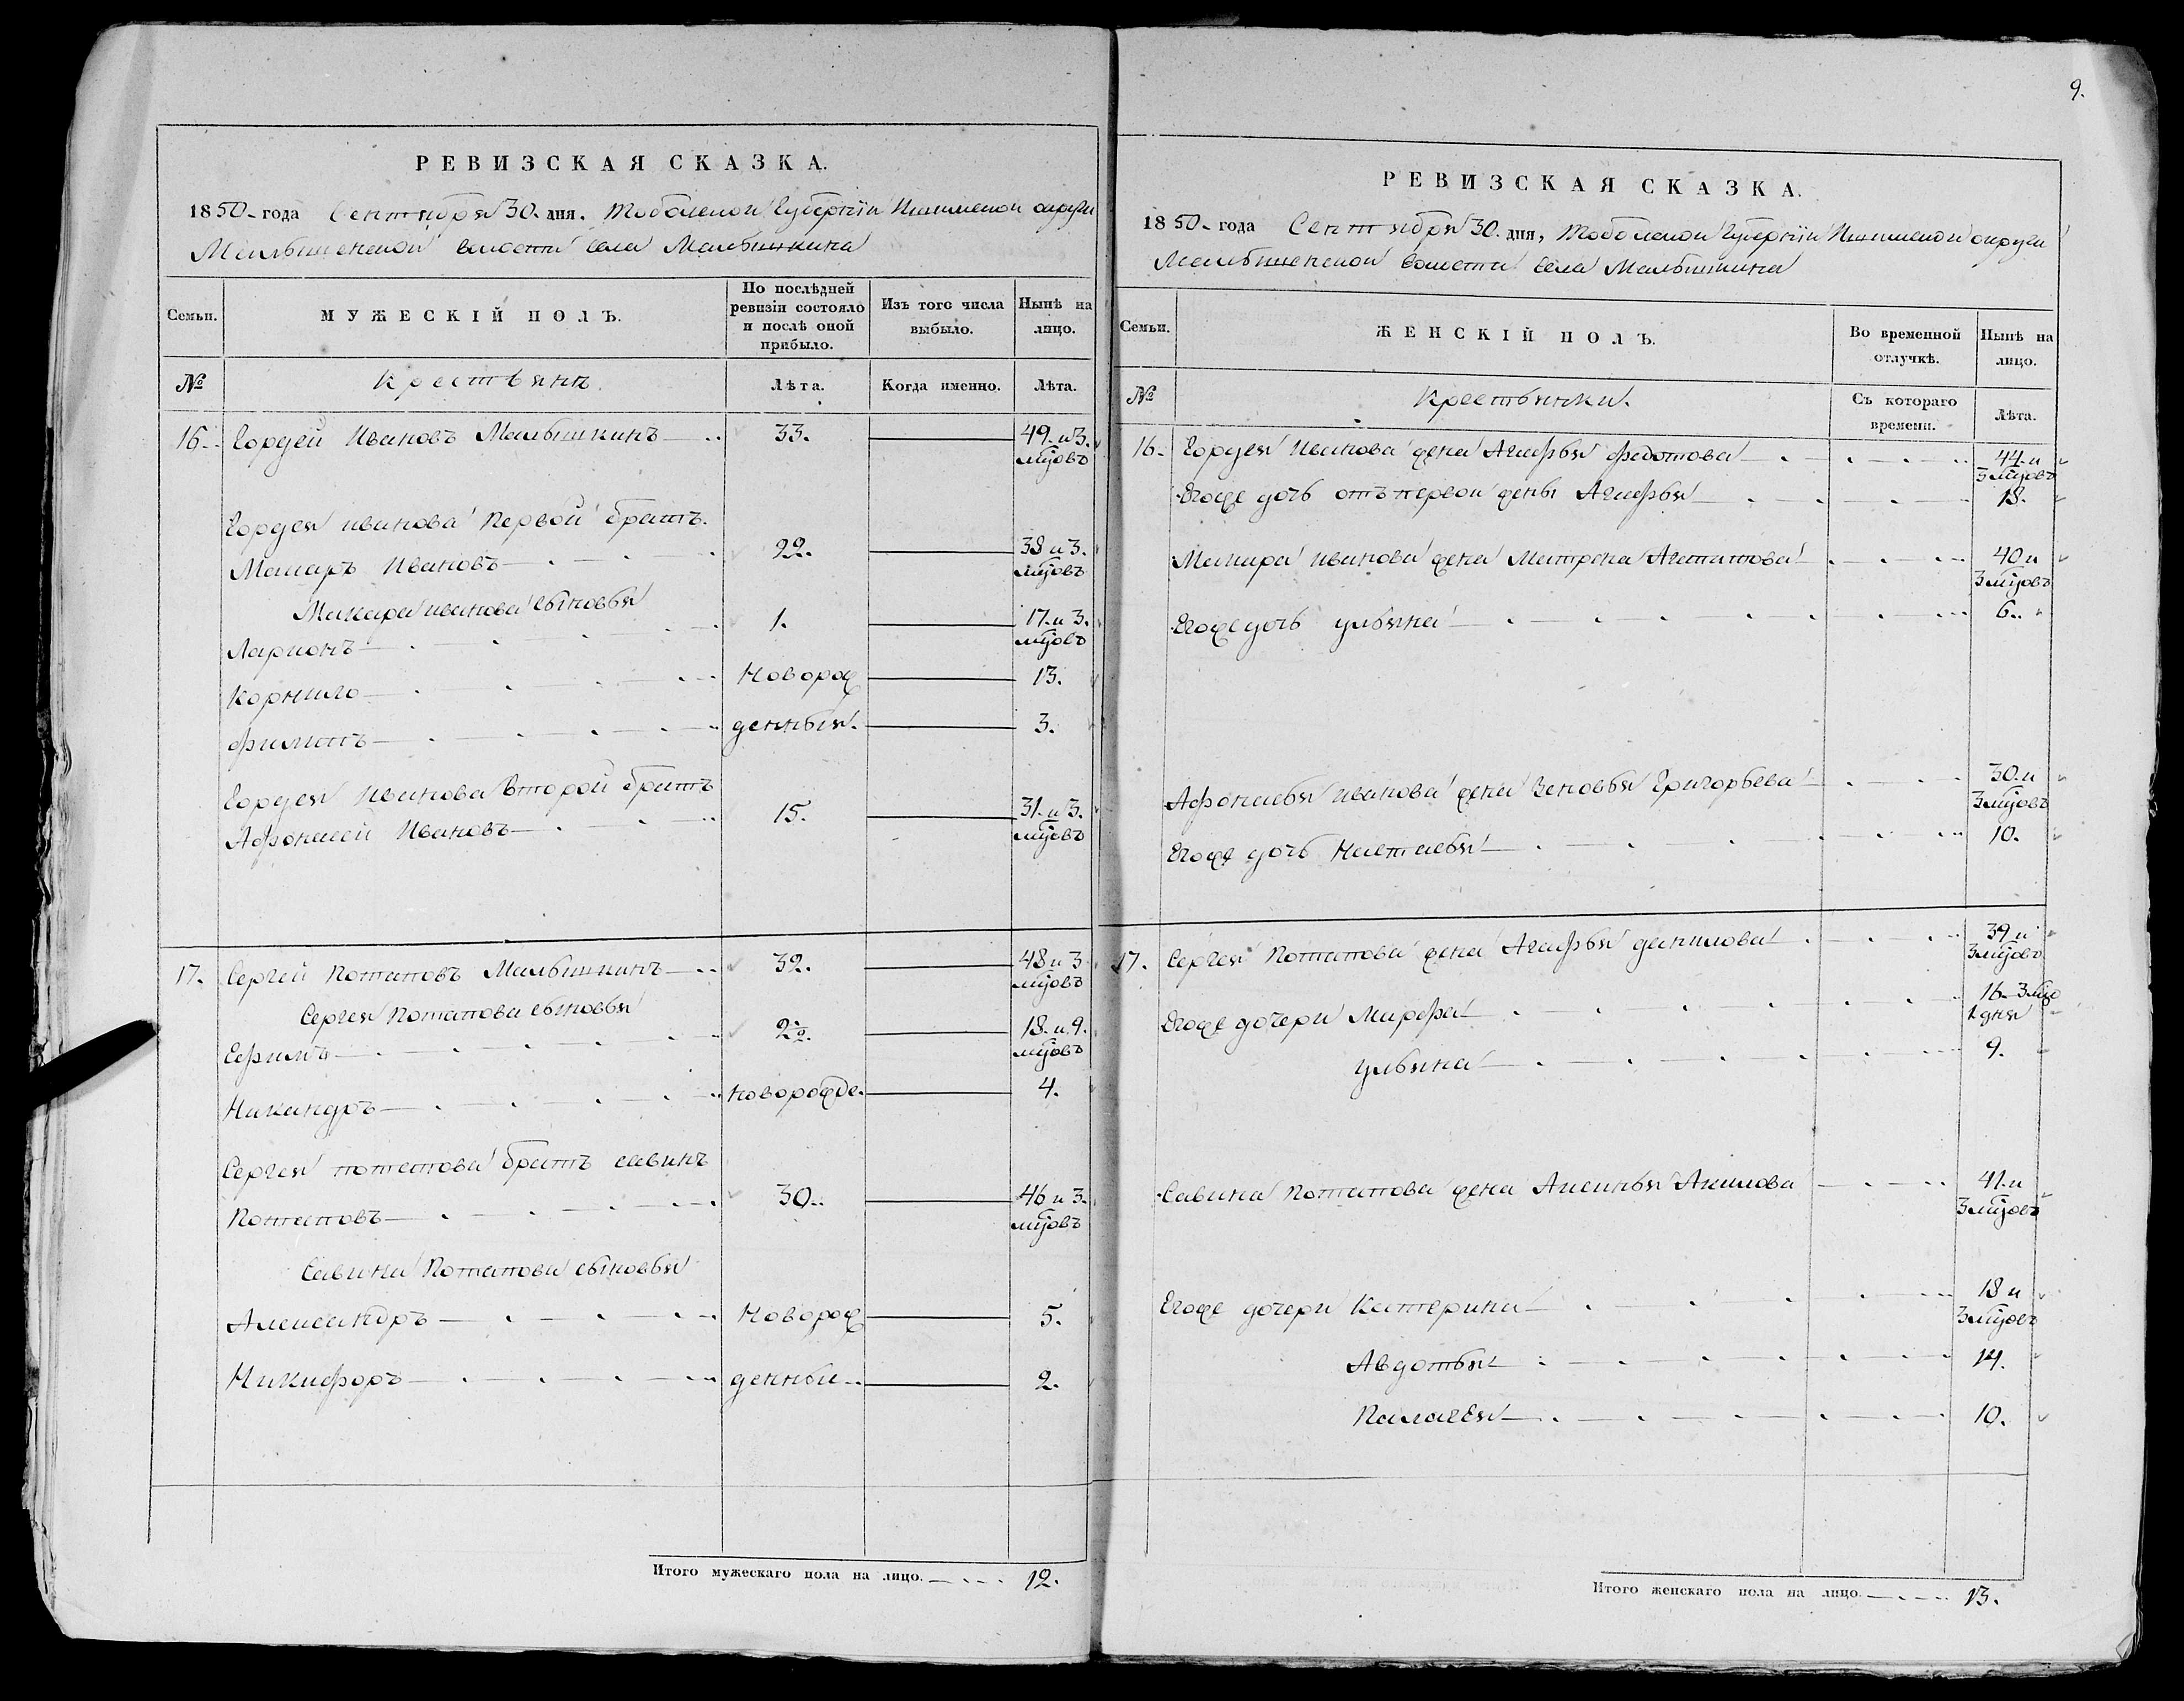 РЕВИЗСКАЯ СКАЗКА.
1850-года Сентября 30. дня. Тобольской Губерніи Ишимской округи
Малышенской волости села Малышкина
Семьи.
МУЖЕСКІЙ ПОЛЪ.
По послѣдней ревизіи состояло и послѣ оной прибыло.
Изъ того числа выбыло.
Нынѣ на лицо.
№
Крестьянъ
Лѣта.
Когда именно.
Лѣта.
16. Гордей Ивановъ Малышкинъ 33. 49. и 3. мѣсовъ
Гордея иванова первой братъ.
Макаръ Ивановъ 22. 38 и 3. мѣсовъ
Макара иванова сыновья
Ларионъ 1. 17. и 3. мѣсовъ
Корнило Новорож 13.
Филипъ денныя. 3.
Гордея Иванова второй братъ
Афонасей Ивановъ 15. 31. и 3. мѣсовъ
17. Сергей Потаповъ Малышкинъ 32. 48 и 3 мѣсовъ
Сергея Потапова сыновья
Ефимъ 2½. 18. и 9. мѣсовъ
Никандръ новорожде. 4.
Сергея потапова братъ савинъ
Потаповъ 30. 46 и 3. мѣсовъ
Савина Потапова сыновья
Александръ Новорож 5.
Никифоръ денныи 2.
Итого мужескаго пола на лицо. 12.
9.
РЕВИЗСКАЯ СКАЗКА.
1850-года Сентября 30. дня, Тобольской Губерніи Ишимской округи
Малышенской волости села Малышкина
Семьи.
ЖЕНСКІЙ ПОЛЪ.
Во временной отлучкѣ.
Нынѣ на лицо.
№
Крестьянки.
Съ котораго времени.
Лѣта.
16. Гордея Иванова жена Агафья федотова 44. и 3 мѣсовъ
Егоже дочь отъ первой жены Агафья 18.
Макара иванова жена Матрена 40 и 3 мѣсовъ
Егоже дочь ульяна 6.
Афонасья иванова жена Зеновья Григорьева 30. и 3 мѣсовъ
Егоже дочь Настасья 10.
17. Сергея Потапова жена Агафья данилова 39 и 3 мѣсовъ
Егоже дочери Марфа 16-3 мѣс 1 дня
ульяна 9.
Савина Потапова жена Аксинья Акимова 41. и 3 мѣсовъ
Егоже дочери Катерина 18 и 3 мѣсовъ
Авдотья 14.
Палагея 10.
Итого женскаго пола на лицо 13.